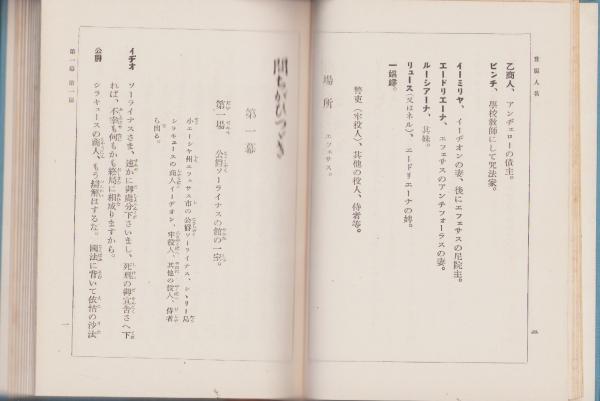 登場人名
乙商人、アンヂェローの債主。
ピンチ、學校敎師にして咒法家。
イーミリヤ、イーヂオンの妻、後にエフェサスの尼院主。
エードリエーナ、エフェサスのアンチフォーラスの妻。
ルーシアーナ、其妹。
リュース(又はネル)、エードリエーナの婢。
一娼婦。
警吏(牢役人)、其他の役人、侍者等。
場所 エフェサス。
間ちがひつゞき
第一幕
第一場 公爵ソーライナスの館の一室。
小エーシヤ州エフェサス市の公爵ソーライナス、シシリー島
シラキュースの商人イーヂオン、牢役人、其他の役人、侍者
ら出る。
イヂオ ソーライナスさま、速かに御處分下さいまし、死刑の御宣告さへ下
れば、不幸も何もかも終局に相成りますから。
公爵 シラキュースの商人、もう辯解はするな。國法に背いて依怙の沙汰
第一幕 第一場
一